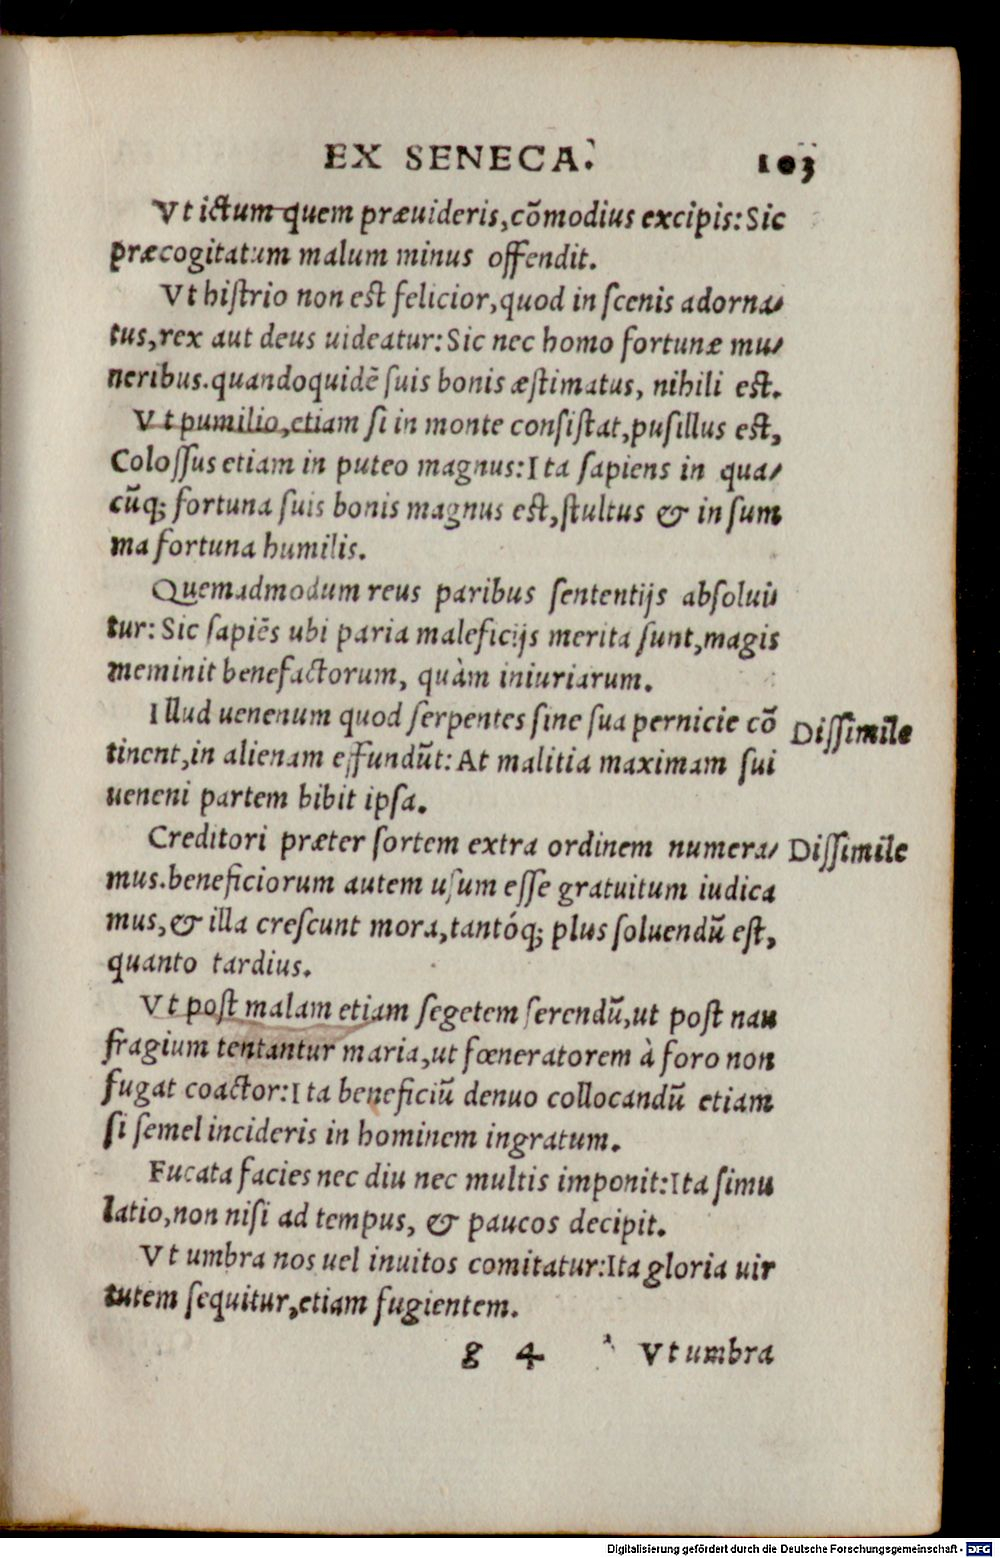 EX SENECA.
103
Vt ictum quem præuideris, cõmodius excipis: Sic
præcogitatum malum minus offendit.
Vt histrio non est felicior, quod in scenis adorna-
tus, rex aut deus uideatur: Sic nec homo fortunæ mu-
neribus. quandoquidẽ suis bonis æstimatus, nihili est.
Vt pumilio, etiam si in monte consistat, pusillus est,
Colossus etiam in puteo magnus: Ita sapiens in qua-
cũq; fortuna suis bonis magnus est, stultus & in sum
ma fortuna humilis.
Quemadmodum reus paribus sententijs absolui
tur: Sic sapiẽs ubi paria maleficijs merita sunt, magis
meminit benefactorum, quàm iniuriarum.
Illud uenenum quod serpentes sine sua pernicie cõ
Dissimile
tinent, in alienam effundũt: At malitia maximam sui
ueneni partem bibit ipsa.
Creditori præter sortem extra ordinem numera-
Dissimile
mus. beneficiorum autem usum esse gratuitum iudica
mus, & illa crescunt mora, tantóq; plus soluendũ est,
quanto tardius.
Vt post malam etiam segetem serendũ, ut post nau
fragium tentantur maria, ut fœneratorem à foro non
fugat coactor: Ita beneficiũ denuo collocandũ etiam
si semel incideris in hominem ingratum.
Fucata facies nec diu nec multis imponit: Ita simu
latio, non nisi ad tempus, & paucos decipit.
Vt umbra nos uel inuitos comitatur: Ita gloria uir
tutem sequitur, etiam fugientem.
g 4
Vt umbra
Digitalisierung gefördert durch die Deutsche Forschungsgemeinschaft - DFG